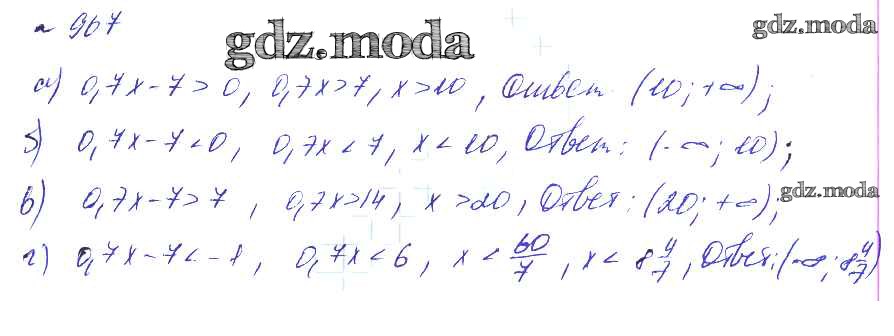 № 967
gdz.moda
gdz.moda
а) 0,7x-7>0, 0,7x>7, x>10, Ответ (10; +∞);
б) 0,7x-7<0, 0,7x<7, x<10, Ответ: (-∞; 10);
в) 0,7x-7>7, 0,7x>14, x>20, Ответ: (20; +∞);
gdz.moda
г) 0,7x-7<-1, 0,7x<6, x<60/7, x<8 4/7, Ответ: (-∞; 8 4/7)